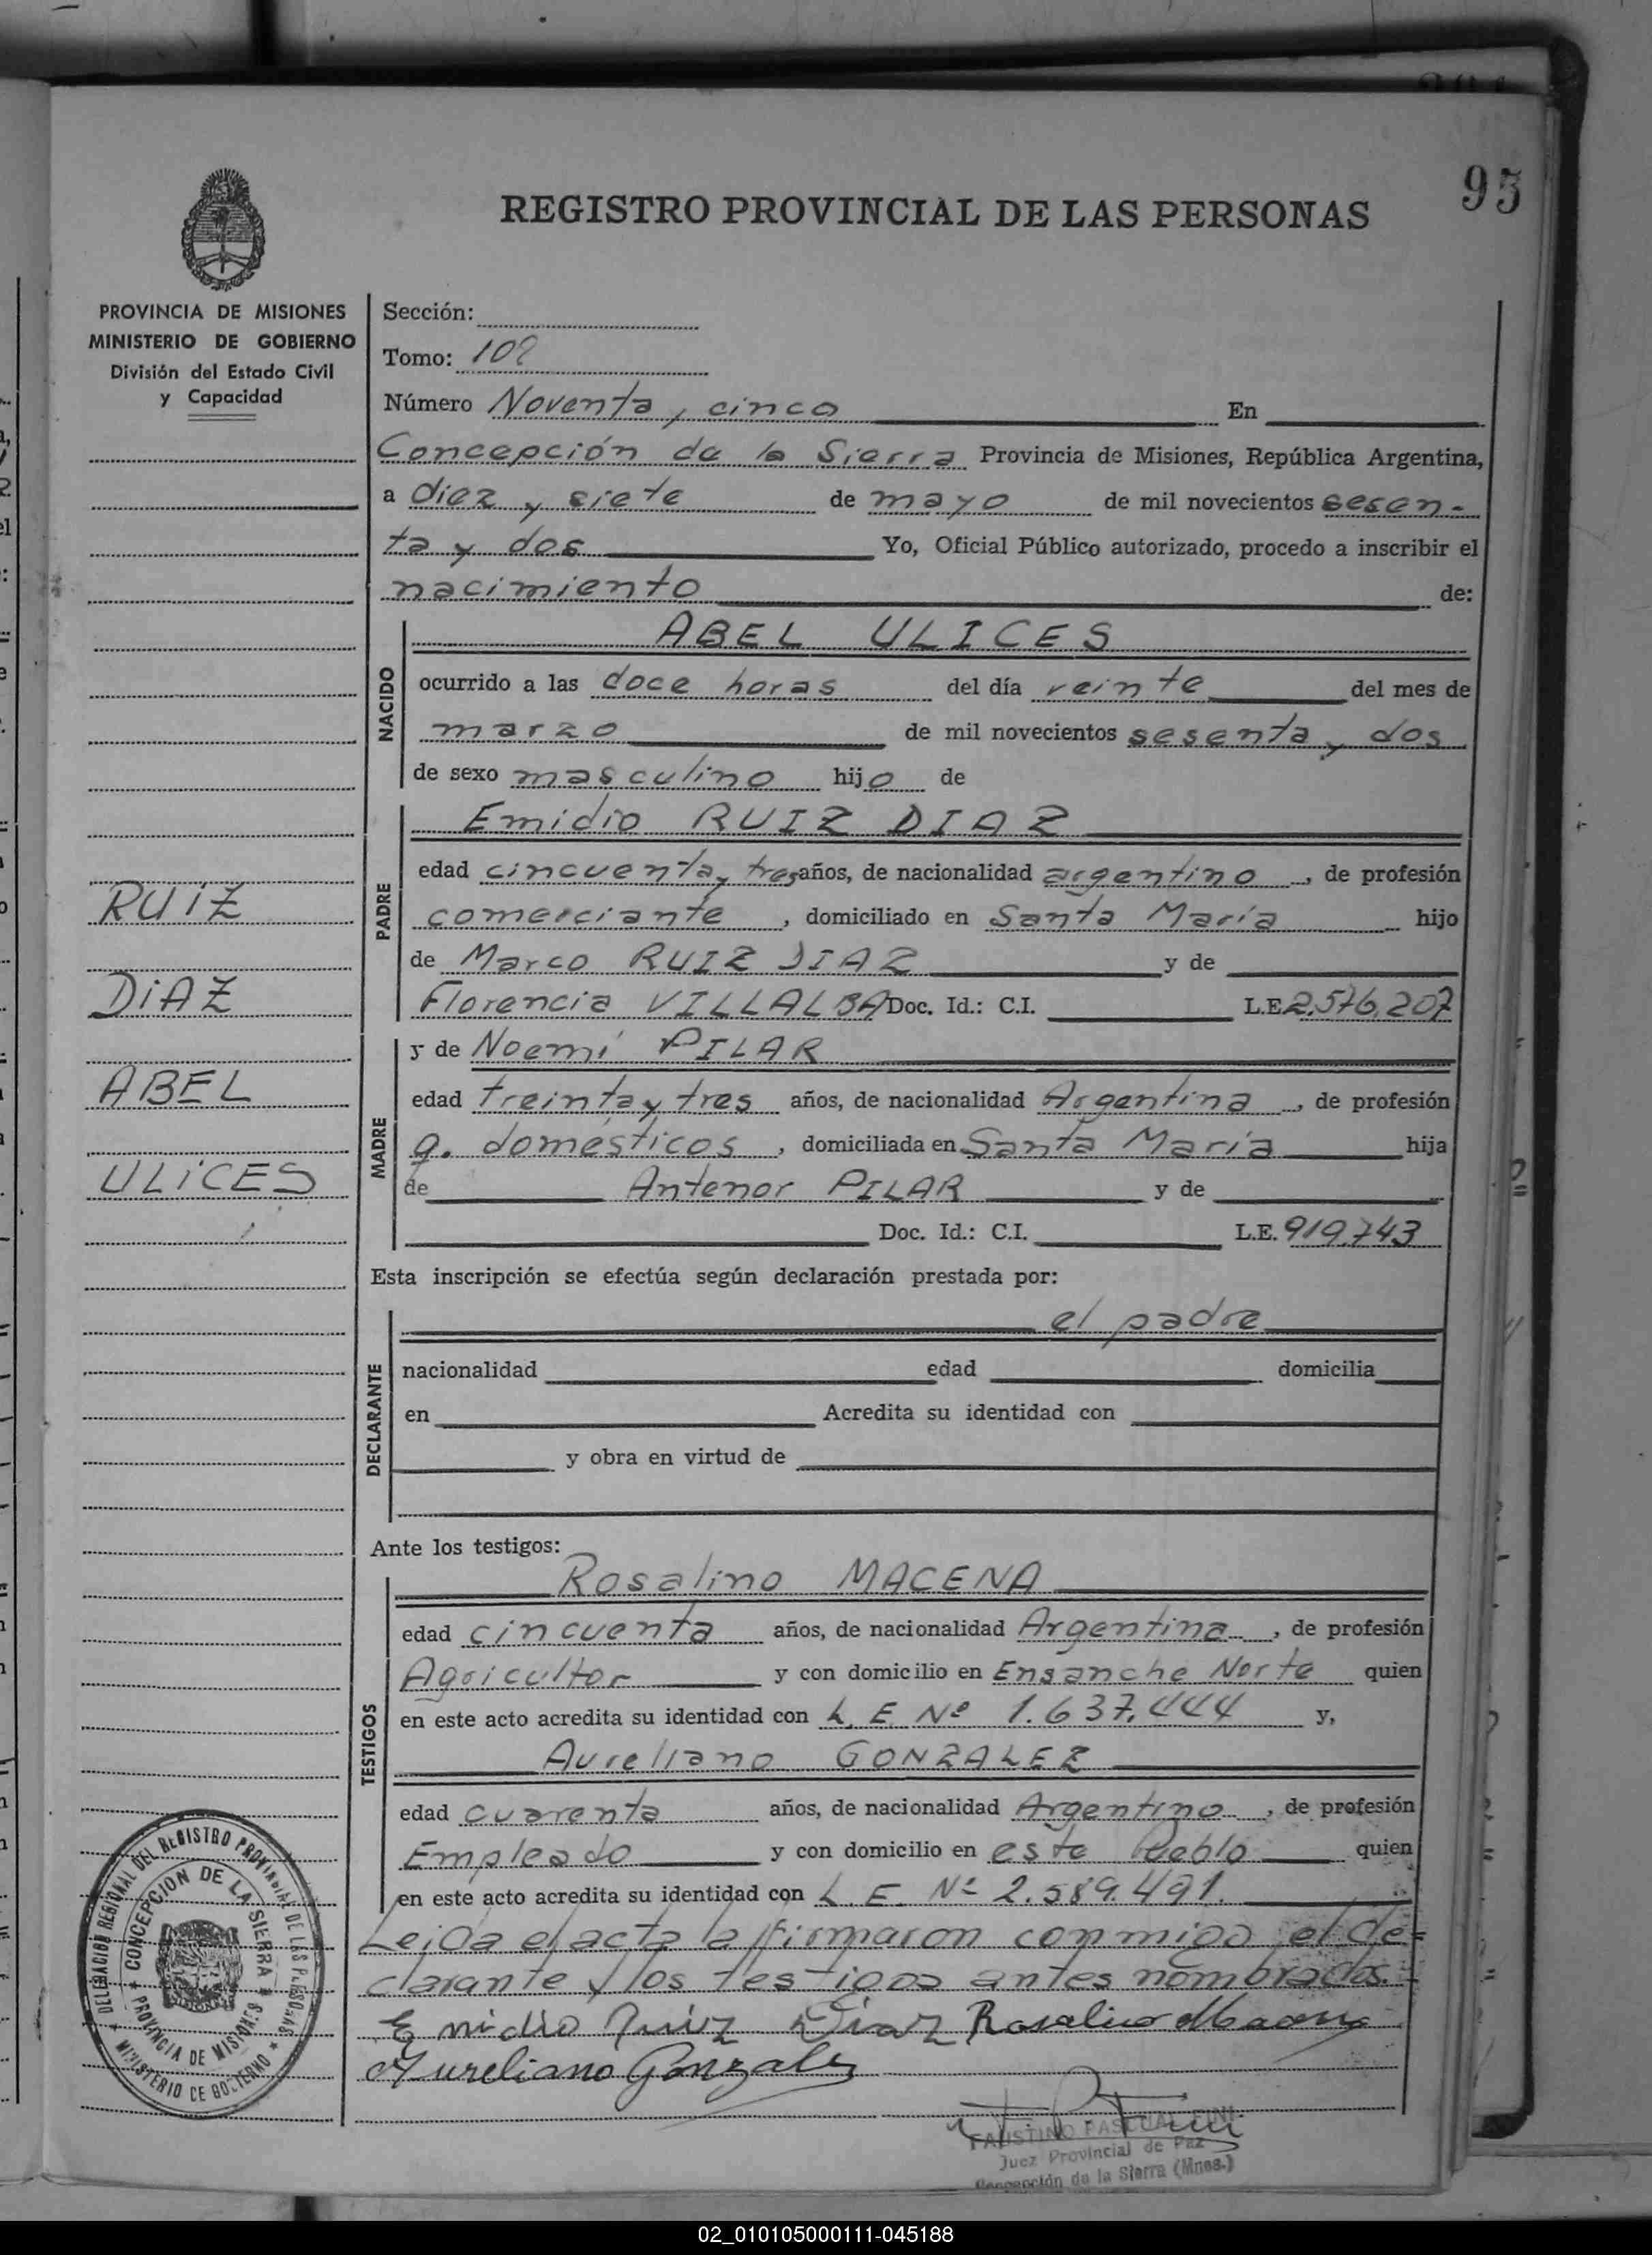 95
REGISTRO PROVINCIAL DE LAS PERSONAS
PROVINCIA DE MISIONES
MINISTERIO DE GOBIERNO
División del Estado Civil
y Capacidad
RUIZ
DIAZ
ABEL
ULICES
Sección:
Tomo: 10º
Número Noventa y cinco En
Concepción de la Sierra Provincia de Misiones, República Argentina,
a diez y siete de mayo de mil novecientos sesen-
ta y dos Yo, Oficial Público autorizado, procedo a inscribir el
nacimiento de:
NACIDO
ABEL ULICES
ocurrido a las doce horas del día veinte del mes de
marzo de mil novecientos sesenta y dos
de sexo masculino hijo de
PADRE
Emidio RUIZ DIAZ
edad cincuenta y tres años, de nacionalidad argentino, de profesión
comerciante, domiciliado en Santa María hijo
de Marco RUIZ DIAZ y de
Florencia VILLALBA Doc. Id.: C.I. L.E. 2.576.207
MADRE
y de Noemí PILAR
edad treinta y tres años, de nacionalidad Argentina, de profesión
q. domésticos, domiciliada en Santa María hija
de Antenor PILAR y de
Doc. Id.: C.I. L.E. 919.743
Esta inscripción se efectúa según declaración prestada por:
DECLARANTE
el padre
nacionalidad edad domicilia
en Acredita su identidad con
y obra en virtud de
Ante los testigos:
TESTIGOS
Rosalino MACENA
edad cincuenta años, de nacionalidad Argentina, de profesión
Agricultor y con domicilio en Ensanche Norte quien
en este acto acredita su identidad con L. E. Nº 1.637.444 y,
Aureliano GONZALEZ
edad cuarenta años, de nacionalidad Argentino, de profesión
Empleado y con domicilio en este Pueblo quien
en este acto acredita su identidad con L. E. Nº 2.589.491.
Leida el acta la firmaron conmigo el de-
clarante y los testigos antes nombrados.-
Emidio Ruiz Diaz Rosalino Macena
Aureliano Gonzalez
DELEGACION REGIONAL DEL REGISTRO PROVINCIAL DE LAS PERSONAS
MINISTERIO DE GOBIERNO
CONCEPCION DE LA SIERRA
PROVINCIA DE MISIONES
FAUSTINO PASCUAL FINI
Juez Provincial de Paz
Concepción de la Sierra (Mnes.)
02_010105000111-045188